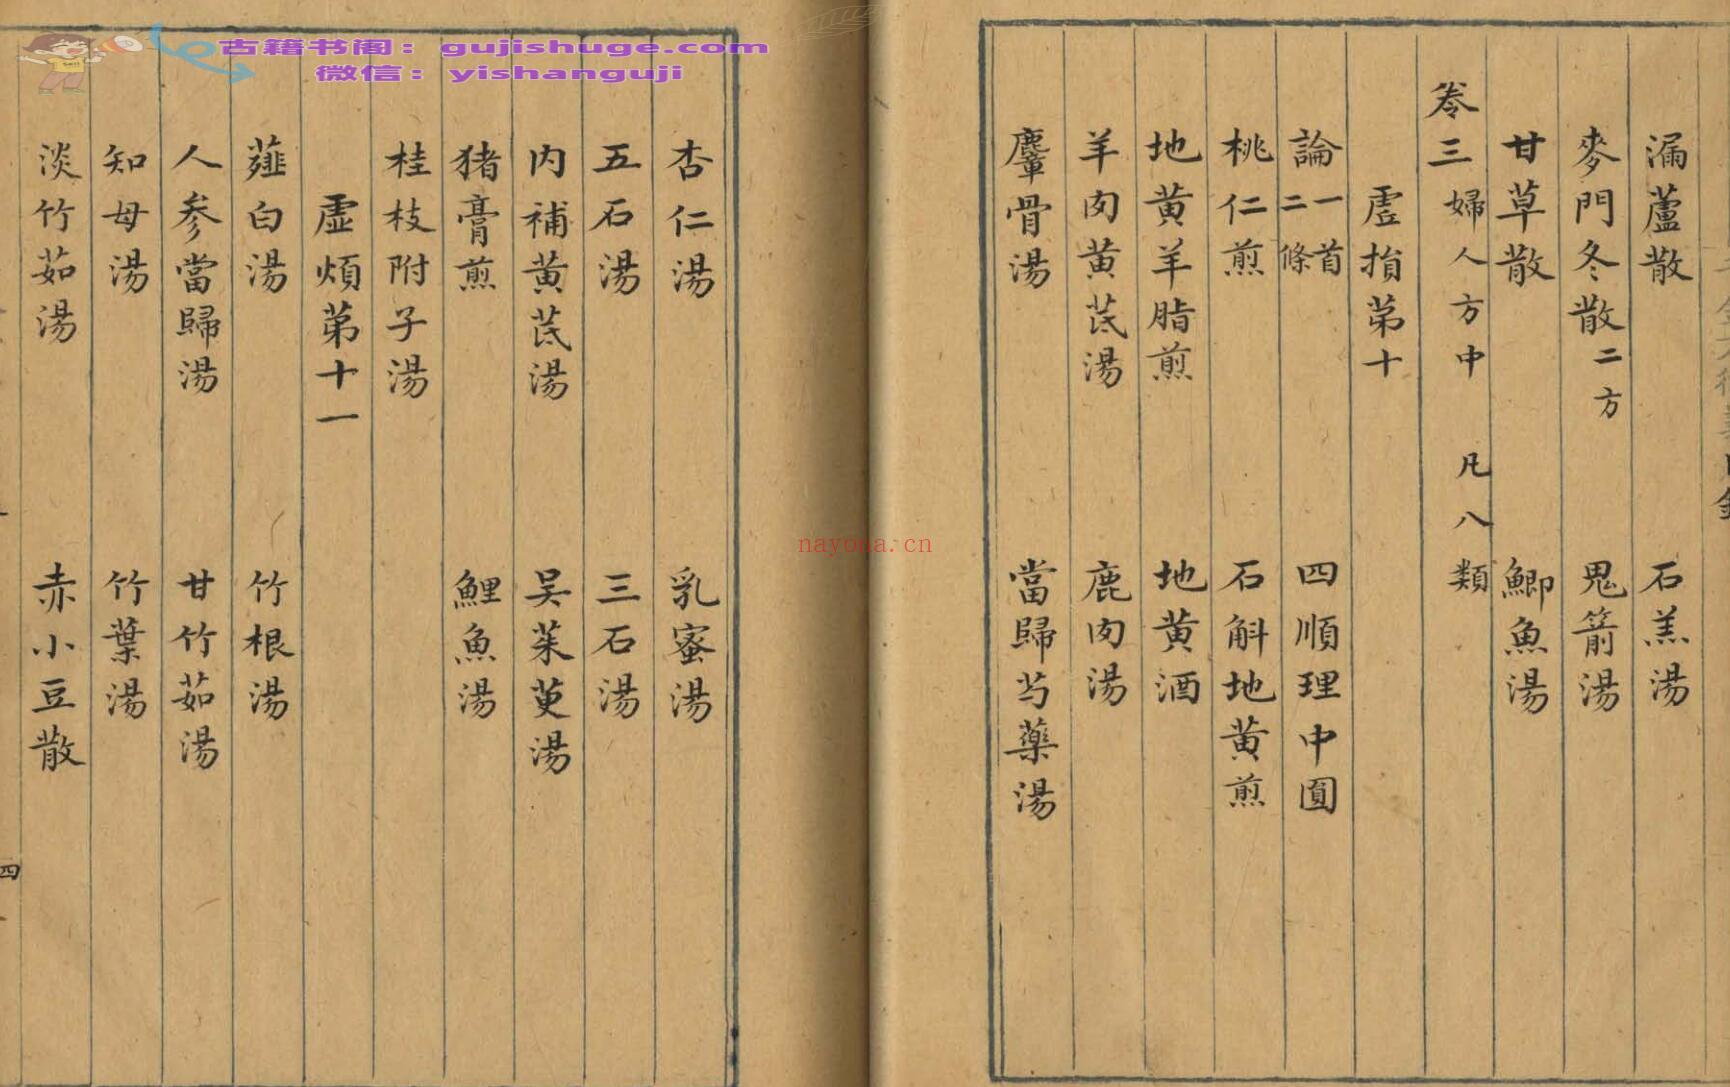 古籍书阁：gujishuge.com
微信：yishanguji
nayona.cn
漏蘆散 石羔湯
麥門冬散二方 鬼箭湯
甘草散 鯽魚湯
卷三婦人方中 凡八類
虛損第十
論一首二條 四順理中圓
桃仁煎 石斛地黄煎
地黄羊脂煎 地黄酒
羊肉黄芪湯 鹿肉湯
麞骨湯 當歸芍藥湯
杏仁湯 乳蜜湯
五石湯 三石湯
内補黄芪湯 吴茱萸湯
猪膏煎 鯉魚湯
桂枝附子湯
虛煩第十一
薤白湯 竹根湯
人参當歸湯 甘竹茹湯
知母湯 竹葉湯
淡竹茹湯 赤小豆散
四